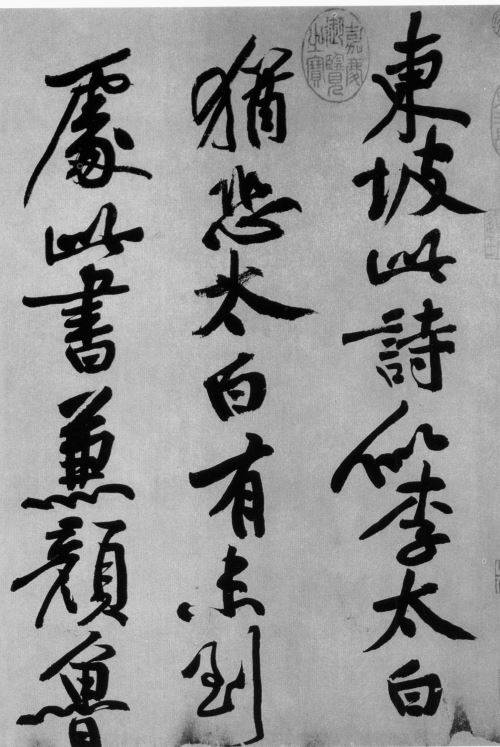 東坡此詩似李太白
嘉慶
御覽
之寶
猶恐太白有未到
處此書兼顏魯